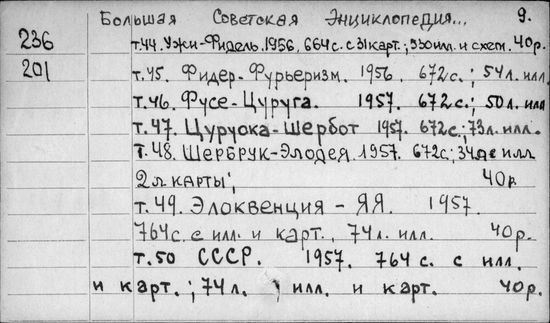 Большая Советская Энциклопедия... 9.
236 т.44. Ужи-Фидель. 1956, 664с. с 31 карт.; 330 илл. и схем. 40р.
201 т.45. Фидер-Фурьеризм. 1956. 672с.; 54л. илл.
т.46. Фусе-Цуруга. 1957. 672с.; 50л. илл
т.47. Цуруока-Шербот 1957. 672с.; 73л. илл.
т.48. Шербрук-Элодея. 1957. 672с; 34 илл
2л карты; 40р
т.49. Элоквенция - ЯЯ. 1957.
764с. с илл. и карт., 74л. илл. 40р.
т.50 СССР. 1957. 764 с. с илл.
и карт.; 74л. илл. и карт. 40р.